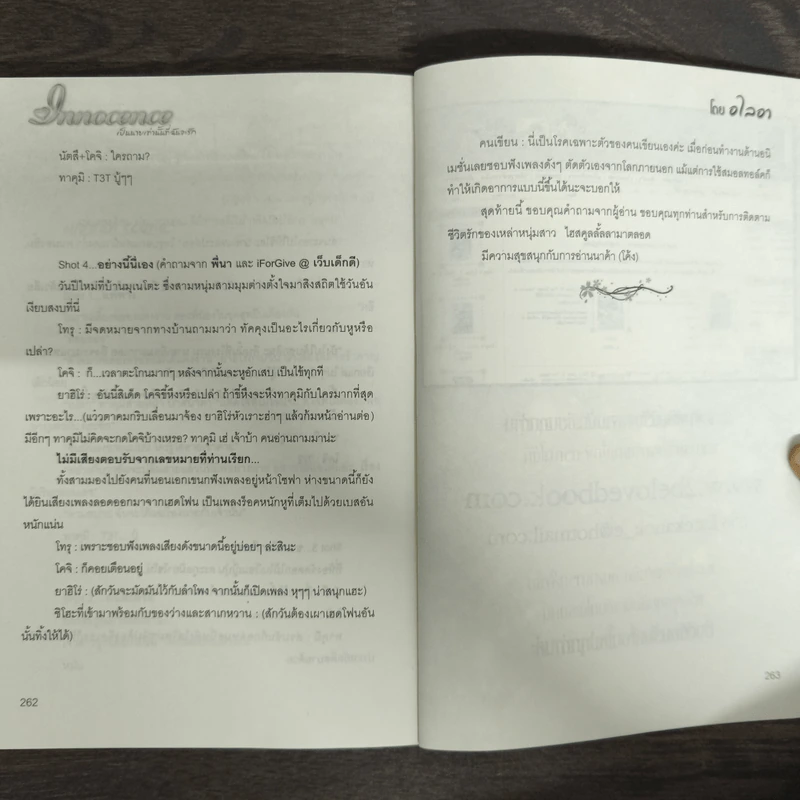 Innocence
นัตสึ+โคจิ : ใครถาม?
ทาคุมิ : T3T บู้ๆๆ
Shot 4...อย่างนี้นี่เอง (คำถามจาก พี่นา และ iForGive @ เว็บเด็กดี)
วันปีใหม่ที่บ้านมุเนโตะ ซึ่งสามหนุ่มสามมุมต่างตั้งใจมาสิงสถิตใช้วันอัน
เงียบสงบที่นี่
โทรุ : มีจดหมายจากทางบ้านถามมาว่า ทัคคุงเป็นอะไรเกี่ยวกับหูหรือ
เปล่า?
โคจิ : ก็...เวลาตะโกนมากๆ หลังจากนั้นจะหูอักเสบ เป็นไข้ทุกที
ยาฮิโร่ : อันนี้สิเด็ด โคจิขี้หึงหรือเปล่า ถ้าขี้หึงจะหึงทาคุมิกับใครมากที่สุด
เพราะอะไร...(แว่วตาคมกริบเลื่อนมาจ้อง ยาฮิโร่หัวเราะฮ่าๆ แล้วก้มหน้าอ่านต่อ)
มีอีกๆ ทาคุมิไม่คิดจะกดโคจิบ้างเหรอ? ทาคุมิ เฮ่ เจ้าบ้า คนอ่านถามมาน่ะ
ไม่มีเสียงตอบรับจากเลขหมายที่ท่านเรียก...
ทั้งสามมองไปยังคนที่นอนเอกเขนกฟังเพลงอยู่หน้าโซฟา ห่างขนาดนี้ก็ยัง
ได้ยินเสียงเพลงลอดออกมาจากเฮดโฟน เป็นเพลงร็อคหนักหูที่เต็มไปด้วยเบสอัน
หนักแน่น
โทรุ : เพราะชอบฟังเพลงเสียงดังขนาดนี้อยู่บ่อยๆ ล่ะสินะ
โคจิ : ก็คอยเตือนอยู่
ยาฮิโร่ : (สักวันจะมัดมันไว้กับลำโพง จากนั้นก็เปิดเพลง หุๆๆ น่าสนุกแฮะ)
ชิโฮะที่เข้ามาพร้อมกับของว่างและสาเกหวาน : (สักวันต้องเผาเฮดโฟนอัน
นั้นทิ้งให้ได้)
262
โดย อไลดา
คนเขียน : นี่เป็นโรคเฉพาะตัวของคนเขียนเองค่ะ เมื่อก่อนทำงานด้านอนิ
เมชั่นเลยชอบฟังเพลงดังๆ ตัดตัวเองจากโลกภายนอก แม้แต่การใช้สมอลทอล์คก็
ทำให้เกิดอาการแบบนี้ขึ้นได้นะจะบอกให้
สุดท้ายนี้ ขอบคุณคำถามจากผู้อ่าน ขอบคุณทุกท่านสำหรับการติดตาม
ชีวิตรักของเหล่าหนุ่มสาว ไฮสคูลลั้ลลามาตลอด
มีความสุขสนุกกับการอ่านนาค้า (โค้ง)
263